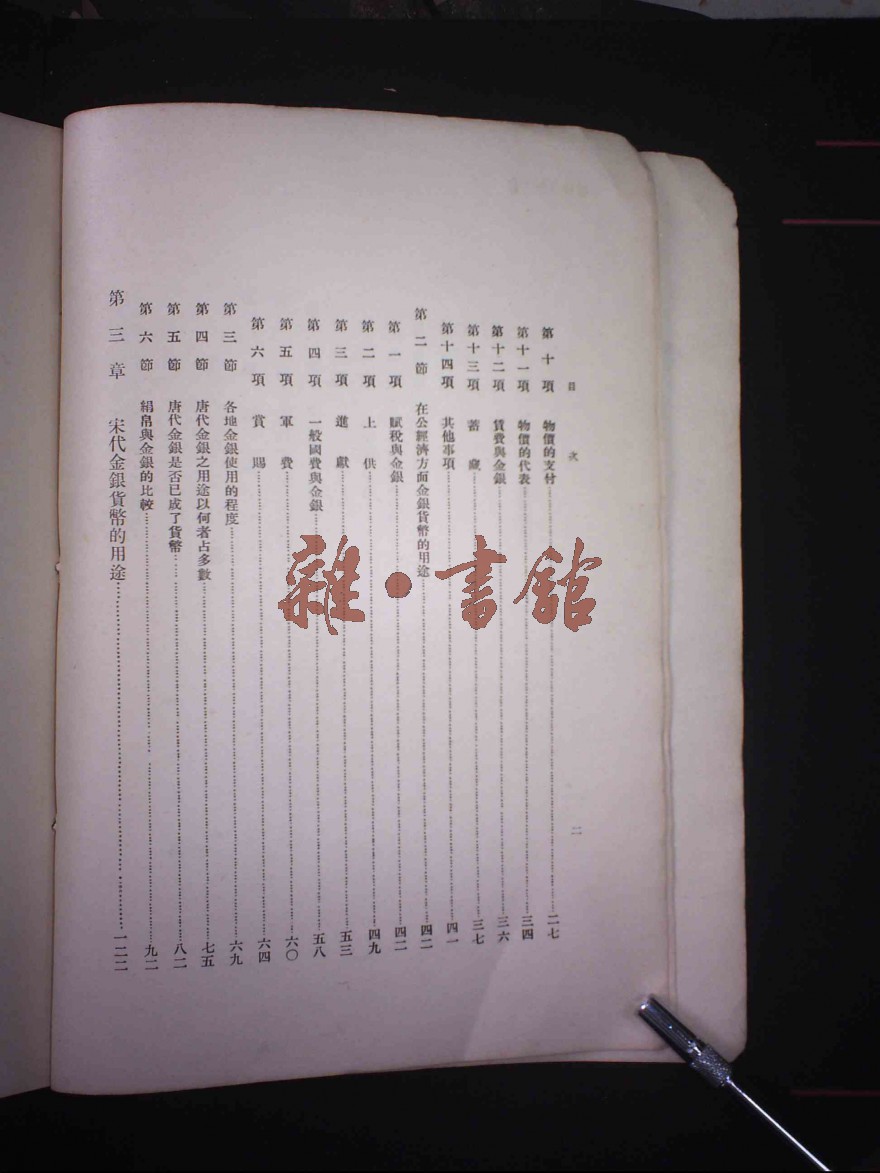 目 次 二
第十項 物價的支付……二七
第十一項 物價的代表……三四
第十二項 賃費與金銀……三六
第十三項 蓄藏……三七
第十四項 其他事項……四一
第二節 在公經濟方面金銀貨幣的用途……四二
第一項 賦稅與金銀……四二
第二項 上供……四九
第三項 進獻……五三
第四項 一般國費與金銀……五八
第五項 軍費……六〇
第六項 賞賜……六四
第三節 各地金銀使用的程度……六九
第四節 唐代金銀之用途以何者占多數……七五
第五節 唐代金銀是否已成了貨幣……八二
第六節 絹帛與金銀的比較……九二
第三章 宋代金銀貨幣的用途……一二二
雜·書館